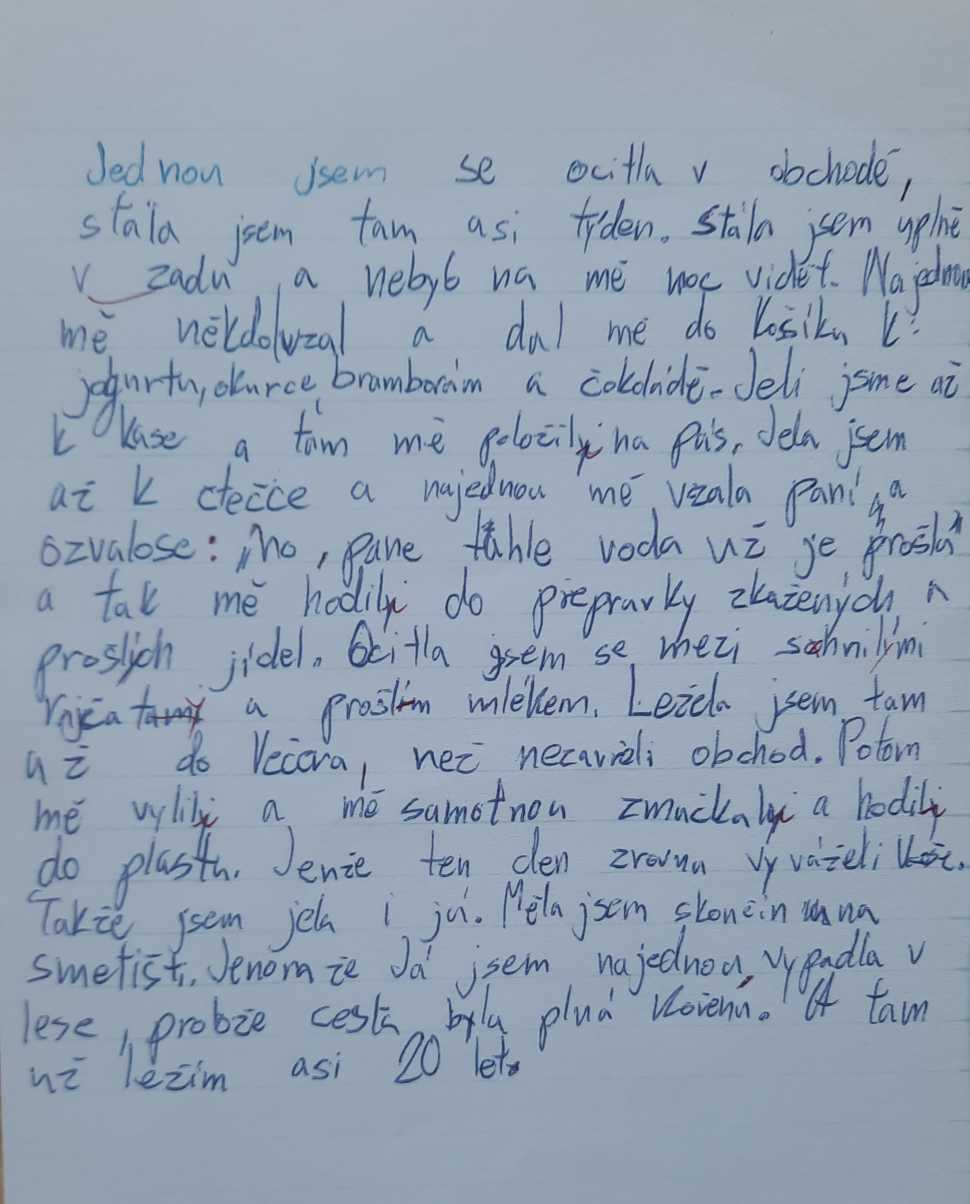 Jednou jsem se ocitla v obchodě,
stála jsem tam asi týden. Stála jsem úplně
v zadu a nebylo na mě moc vidět. Najednou
mě někdo vzal a dal mě do košíku k:
jogurtu, okurce, bramborám a čokoládě. Jeli jsme až
k kase a tam mě položili na pás. Jela jsem
až k čtečce a najednou mě vzala paní a
ozvalose: „no, pane tahle voda už je prošlá“
a tak mě hodili do přepravky zkažených a
prošlých jídel. Ocitla jsem se mezi shnilými
rajčaty a prošlím mlékem. Ležela jsem tam
až do večera, než nezavřeli obchod. Potom
mě vylili a mě samotnou zmačkali a hodili
do plastu. Jenže ten den zrovna vyváželi koše.
Takže jsem jela i já. Měla jsem skončin na
smetišt. Jenom že Já jsem najednou vypadla v
lese, probže cesta byla plná kořenů. A tam
už ležím asi 20 let.